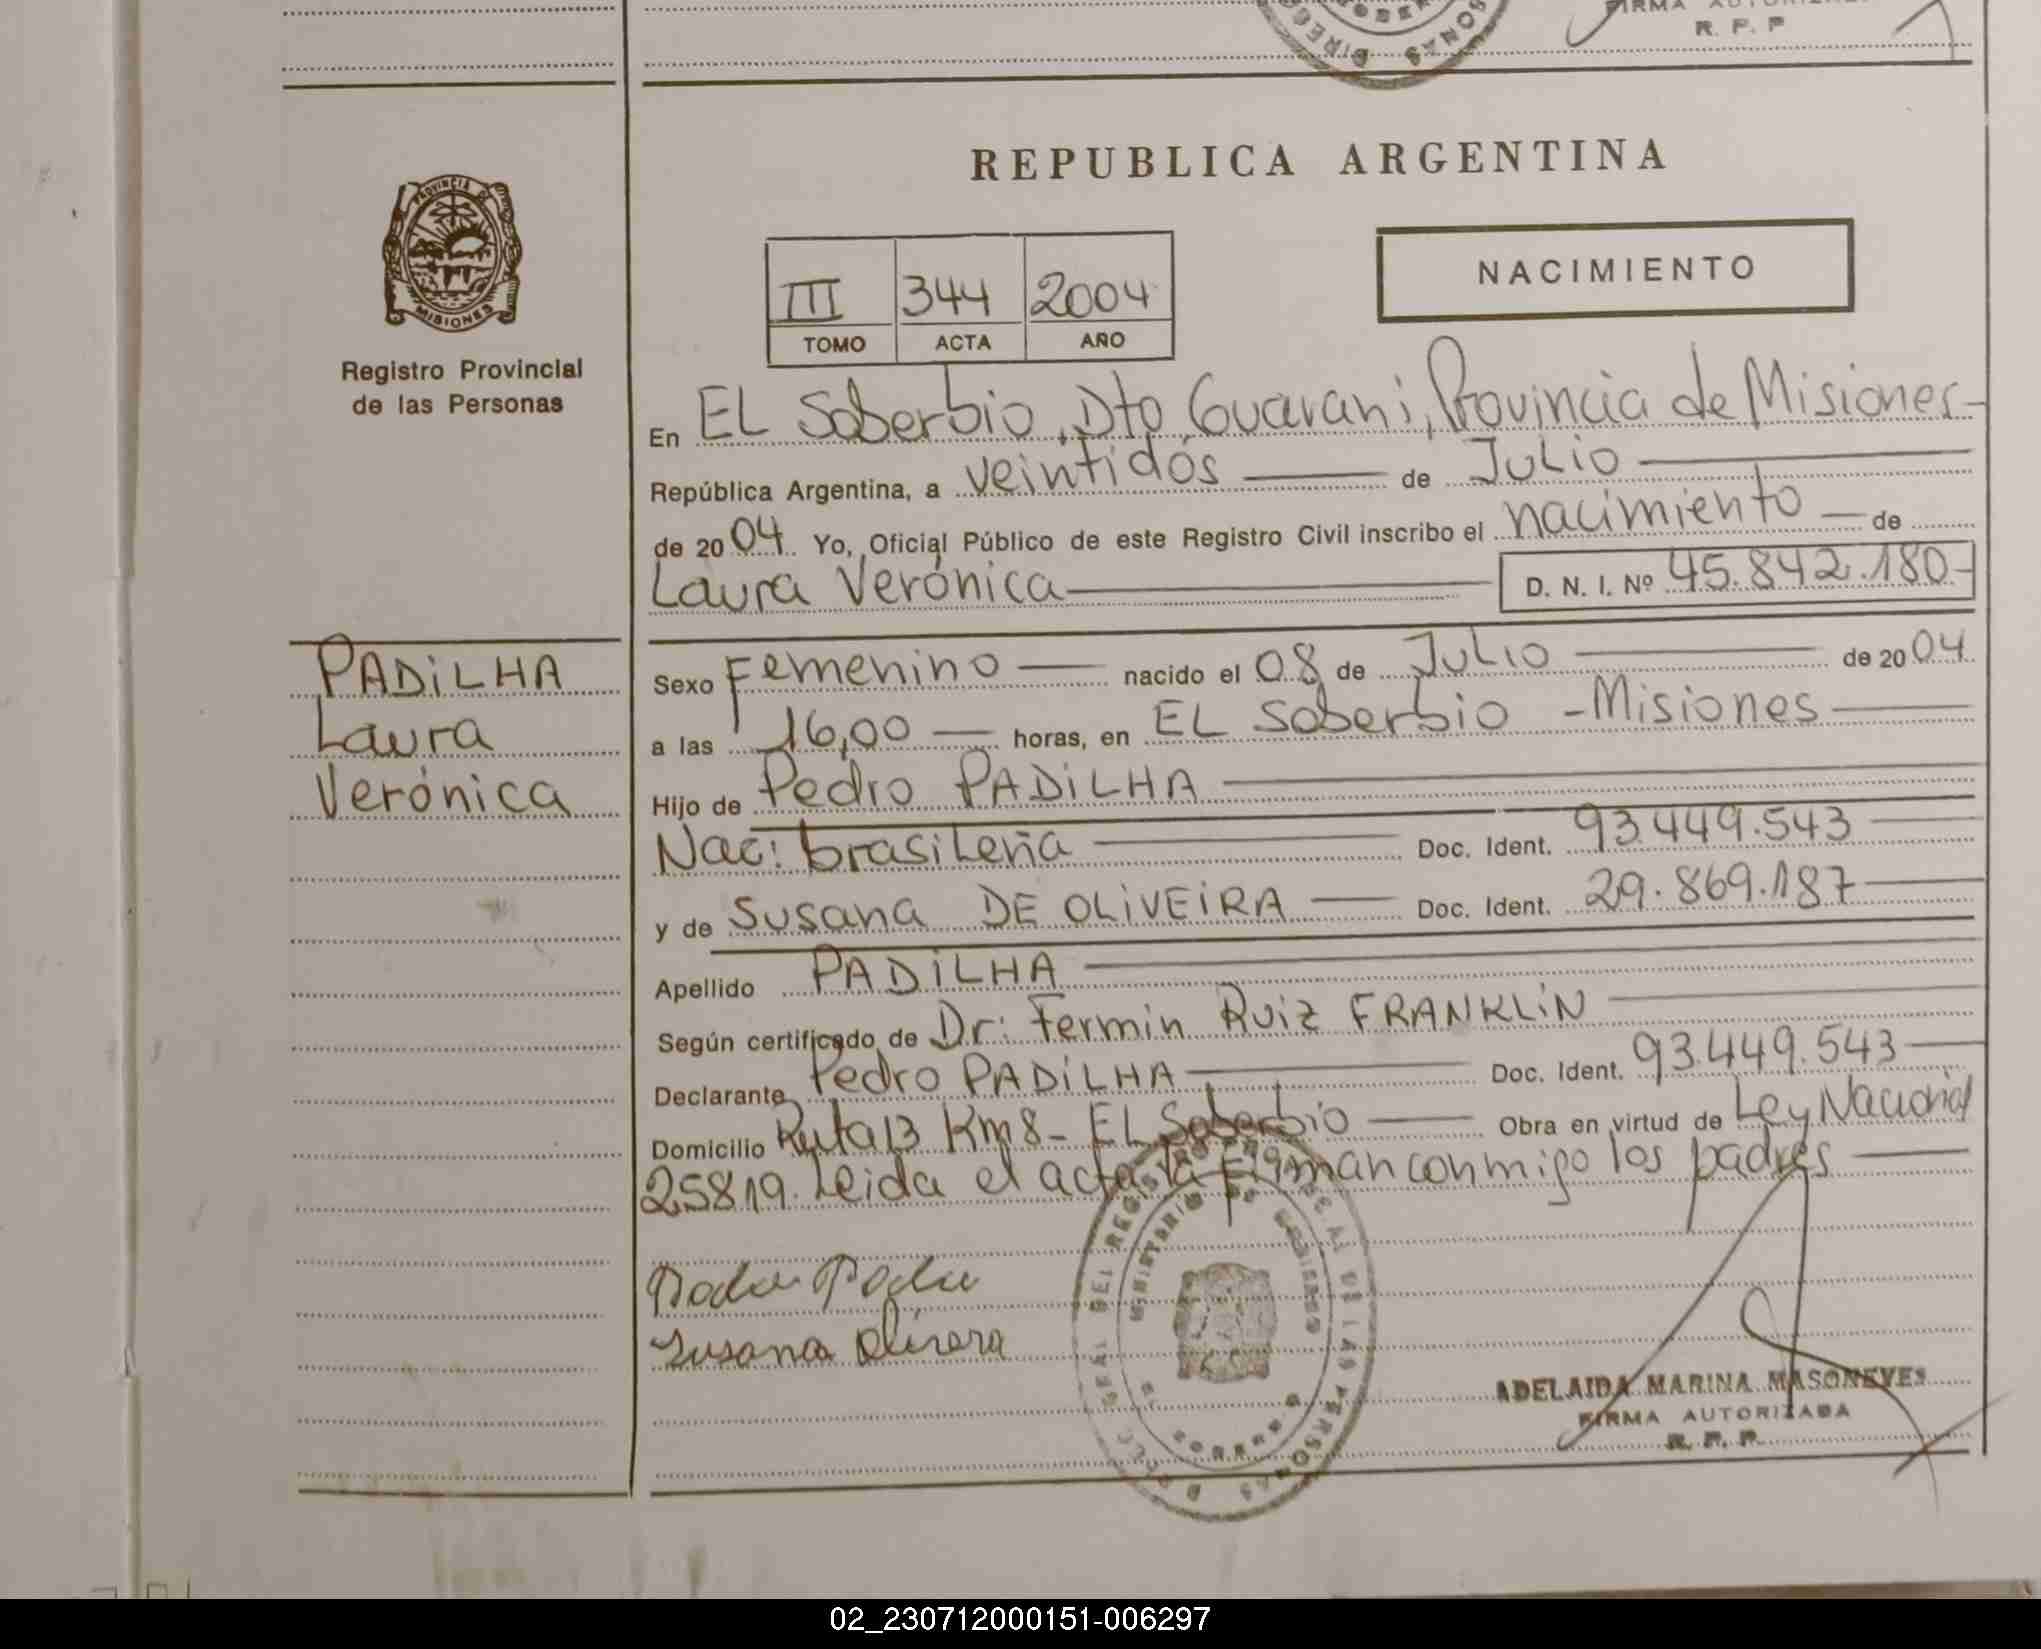 FIRMA AUTORIZA
R. P. P
PROVINCIA DE
MISIONES
Registro Provincial
de las Personas
REPUBLICA ARGENTINA
NACIMIENTO
III 344 2004
TOMO ACTA AÑO
En EL Soberbio, Dto Guarani, Provincia de Misiones-
República Argentina, a veintidós de Julio
de 2004. Yo, Oficial Público de este Registro Civil inscribo el nacimiento de
Laura Verónica D. N. I. Nº 45.842.180-
PADiLHA
Laura
Verónica
Sexo Femenino nacido el 08 de Julio de 2004
a las 16,00 horas, en EL Soberbio - Misiones
Hijo de Pedro PADiLHA
Nac: brasileña Doc. Ident. 93.449.543
y de Susana DE OLiVEiRA Doc. Ident. 29.869.187
Apellido PADiLHA
Según certificado de Dr: Fermin Ruiz FRANKLiN
Declarante Pedro PADiLHA Doc. Ident. 93.449.543
Domicilio Ruta 13 Km 8- EL Soberbio Obra en virtud de Ley Nacional
25819. Leida el acta la firman conmigo los padres
Susana Olivera
ADELAIDA MARINA MASONEVES
FIRMA AUTORIZADA
R. P. P.
02_230712000151-006297